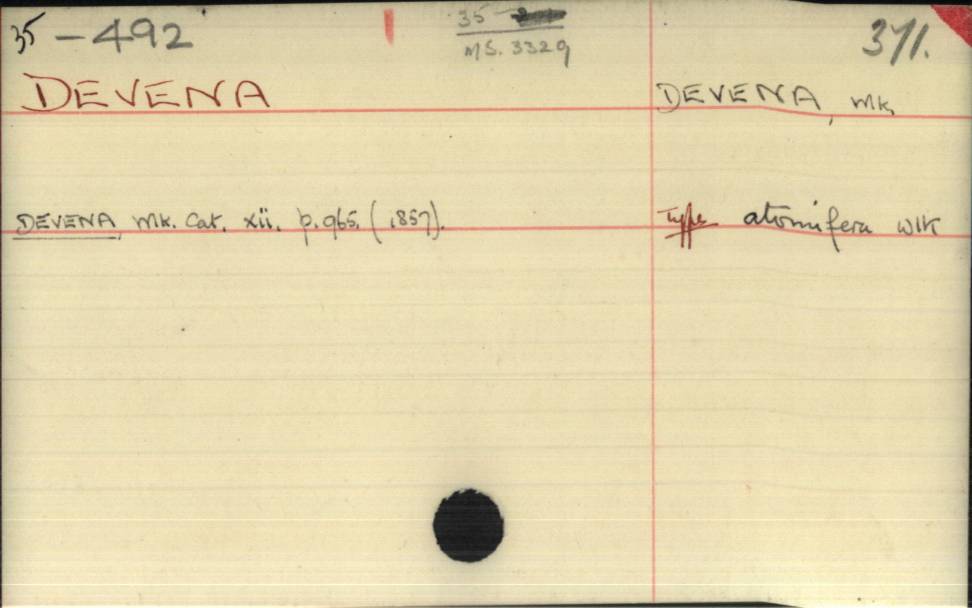 35 - 492
35
MS. 3329
371.
DEVENA
DEVENA, Wlk.
DEVENA, Wlk. Cat. xii. p. 965. (1857).
Type atomifera Wlk